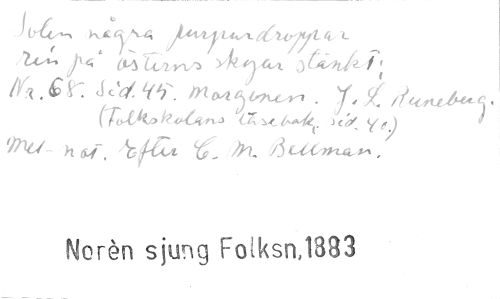 Solen några purpurdroppar
ren på österns skyar stänkt;
Nr. 68. Sid. 45. Morgonen. J. L. Runeberg.
(Folkskolans läsebok, sid. 40.)
Mel- not. Efter C. M. Bellman.
Norèn sjung Folksn,1883